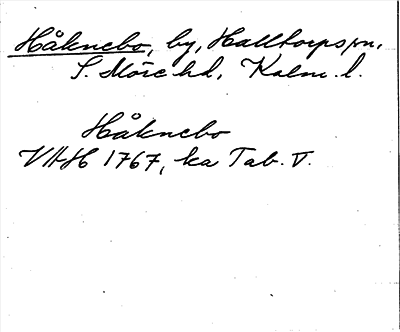 Håknebo, by, Halltorps sn,
S. Möre hd, Kalm. l.
Håknebo
VAH 1767, ka Tab. V.